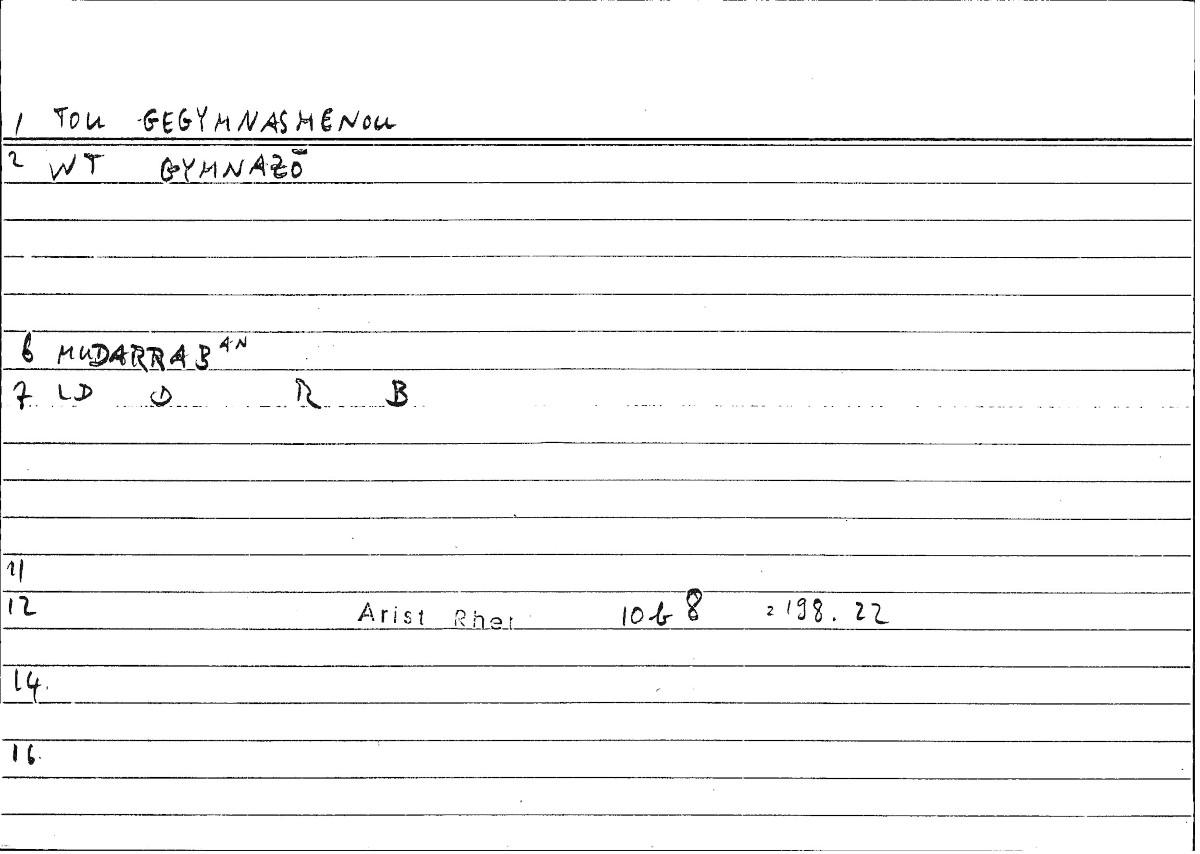 1 TOU GEGYMNASMENOU
2 WT GYMNAZŌ
6 MUDARRAB AN
7 LD D R B
11
12 Arist Rhet 10b 8 2198. 22
14.
16.